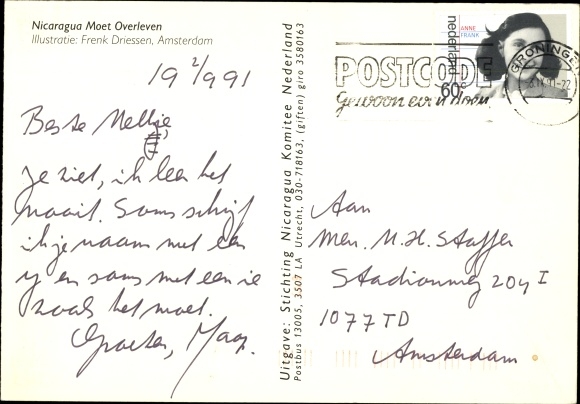 Nicaragua Moet Overleven
Illustratie: Frenk Driessen, Amsterdam
19 2/9 91
Beste Nellie,
je ziet, ik leer het
nooit. Soms schrijf
ik je naam met een
y en soms met een ie
zoals het moet.
Groeten, Maap.
Uitgave: Stichting Nicaragua Komitee Nederland
Postbus 13005, 3507 LA Utrecht, 030-718163, (giften) giro 3580163
ANNE
FRANK
nederland
60c
POSTCODE
Gewoon even doen
GRONINGEN
Aan
Mevr. N.H. Staffer
Stadionweg 204 I
1077 TD
Amsterdam